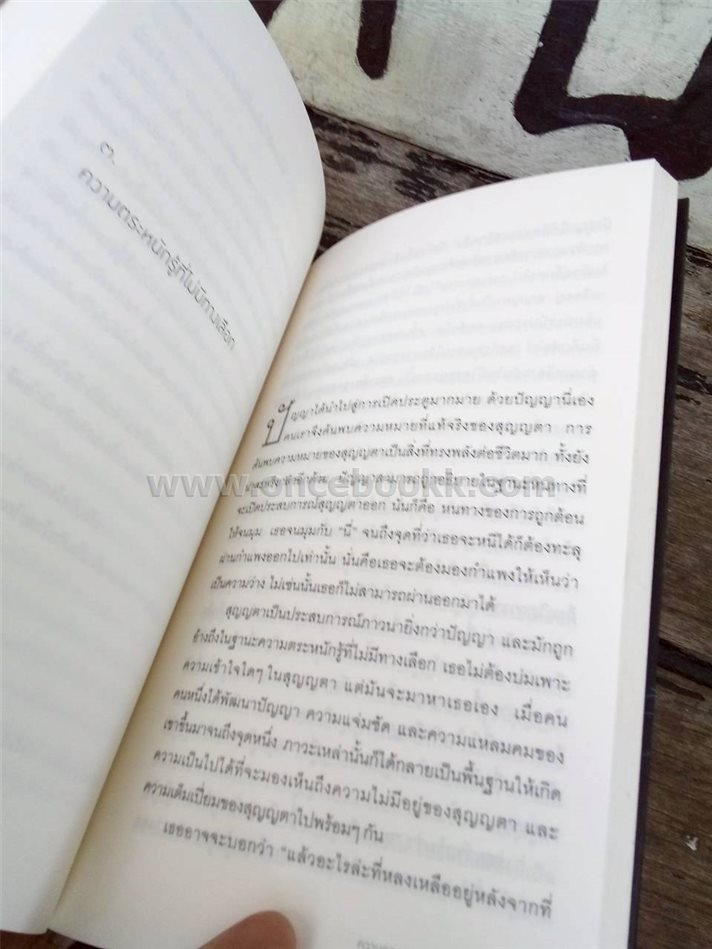 ๓.
ความตระหนักรู้ที่ไม่มีทางเลือก
ปัญญาได้นำไปสู่การเปิดประตูมากมาย ด้วยปัญญานี่เอง
คนเราจึงค้นพบความหมายที่แท้จริงของสุญญตา การ
ค้นพบความหมายของสุญญตาเป็นสิ่งที่ทรงพลังต่อชีวิตมาก ทั้งยัง
www.oncebookk.com
จะเปิดประสบการณ์สุญญตาออก นั่นก็คือ หนทางของการถูกต้อน
ให้จนมุม เธอจนมุมกับ "นี่" จนถึงจุดที่ว่าเธอจะหนีได้ก็ต้องทะลุ
ผ่านกำแพงออกไปเท่านั้น นั่นคือเธอจะต้องมองกำแพงให้เห็นว่า
เป็นความว่าง ไม่เช่นนั้นเธอก็ไม่สามารถผ่านออกมาได้
สุญญตาเป็นประสบการณ์ภาวนายิ่งกว่าปัญญา และมักถูก
อ้างถึงในฐานะความตระหนักรู้ที่ไม่มีทางเลือก เธอไม่ต้องบ่มเพาะ
ความเข้าใจใดๆ ในสุญญตา แต่มันจะมาหาเธอเอง เมื่อคน
คนหนึ่งได้พัฒนาปัญญา ความแจ่มชัด และความแหลมคมของ
เขาขึ้นมาจนถึงจุดหนึ่ง ภาวะเหล่านั้นก็ได้กลายเป็นพื้นฐานให้เกิด
ความเป็นไปได้ที่จะมองเห็นถึงความไม่มีอยู่ของสุญญตา และ
ความเต็มเปี่ยมของสุญญตาไปพร้อมๆ กัน
เธออาจจะบอกว่า "แล้วอะไรล่ะที่หลงเหลืออยู่หลังจากที่